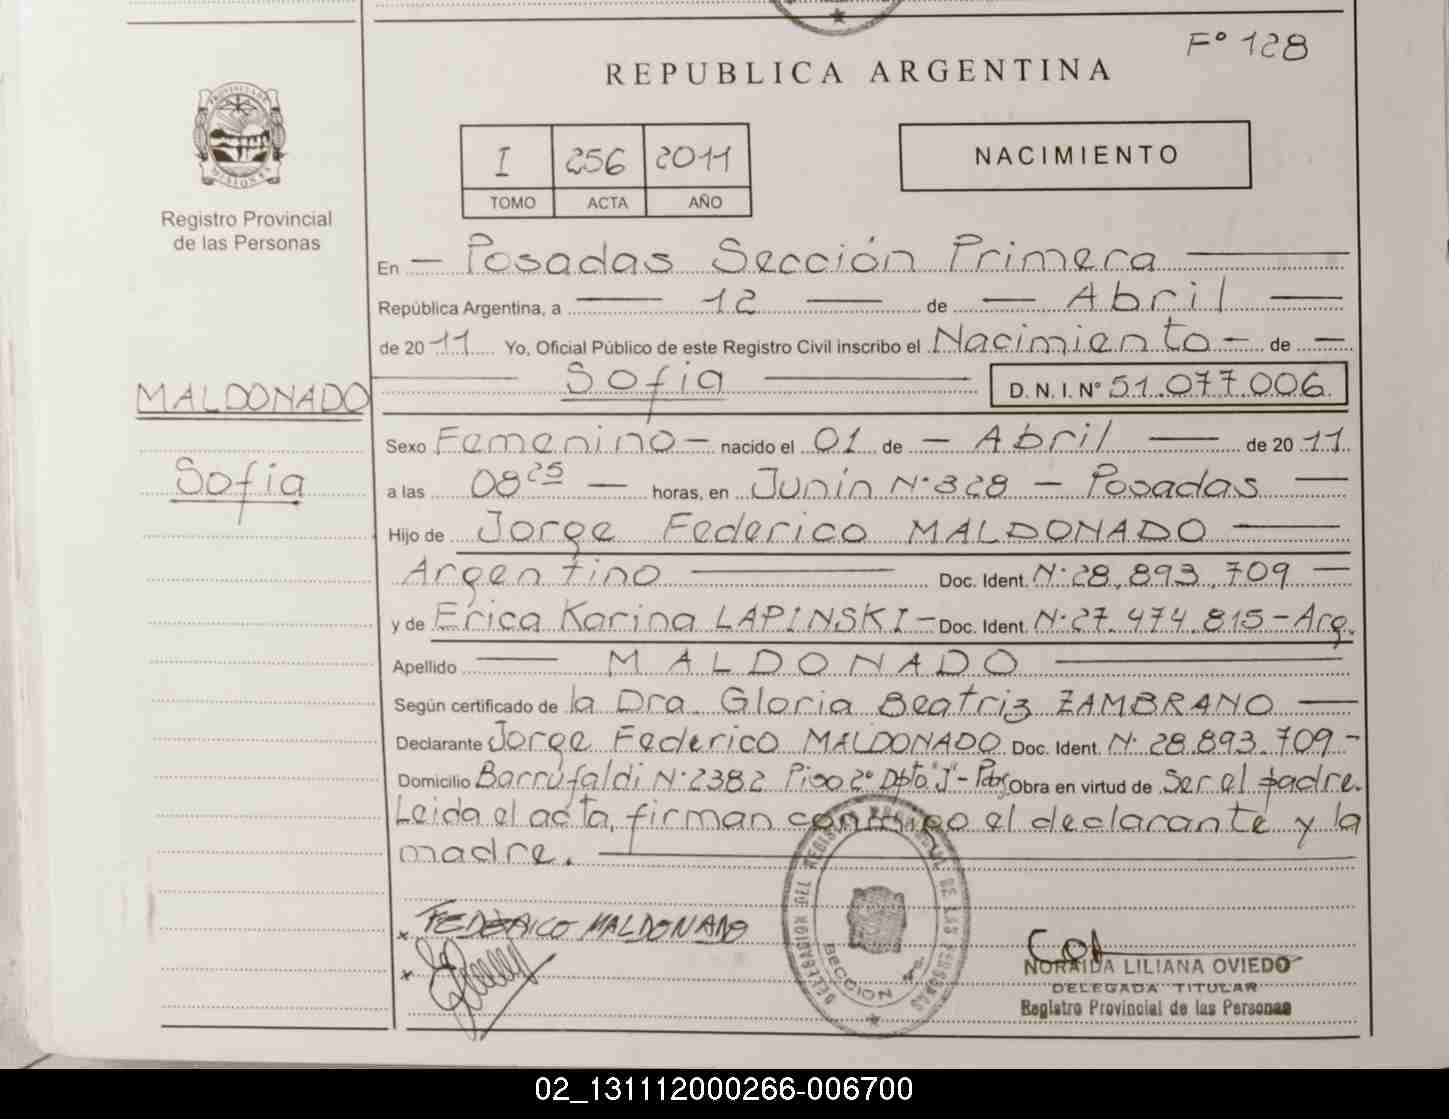 F° 128
REPUBLICA ARGENTINA
PROVINCIA DE
MISIONES
Registro Provincial
de las Personas
I 256 2011
TOMO ACTA AÑO
NACIMIENTO
En — Posadas Sección Primera —
República Argentina, a — 12 — de — Abril —
de 2011 Yo, Oficial Público de este Registro Civil inscribo el Nacimiento — de —
— Sofia — D. N. I. N° 51.077.006
MALDONADO
Sofia
Sexo Femenino — nacido el 01 de — Abril — de 2011
a las 08 25 — horas, en Junín N° 328 — Posadas —
Hijo de Jorge Federico MALDONADO —
Argentino — Doc. Ident. N° 28.893.709 —
y de Erica Karina LAPINSKI — Doc. Ident. N° 27.474.815 — Arg.
Apellido — MALDONADO —
Según certificado de la Dra. Gloria Beatriz ZAMBRANO —
Declarante Jorge Federico MALDONADO Doc. Ident. N° 28.893.709 —
Domicilio Barrufaldi N° 2382 Piso 2° Dpto "J" - Pdas Obra en virtud de Ser el padre.
Leida el acta, firman conmigo el declarante y la
madre. —
x FEDERICO MALDONADO
x
DELEGACION DEL REGISTRO PROVINCIAL DE LAS PERSONAS
SECCION
NORAIDA LILIANA OVIEDO
DELEGADA TITULAR
Registro Provincial de las Personas
02_131112000266-006700